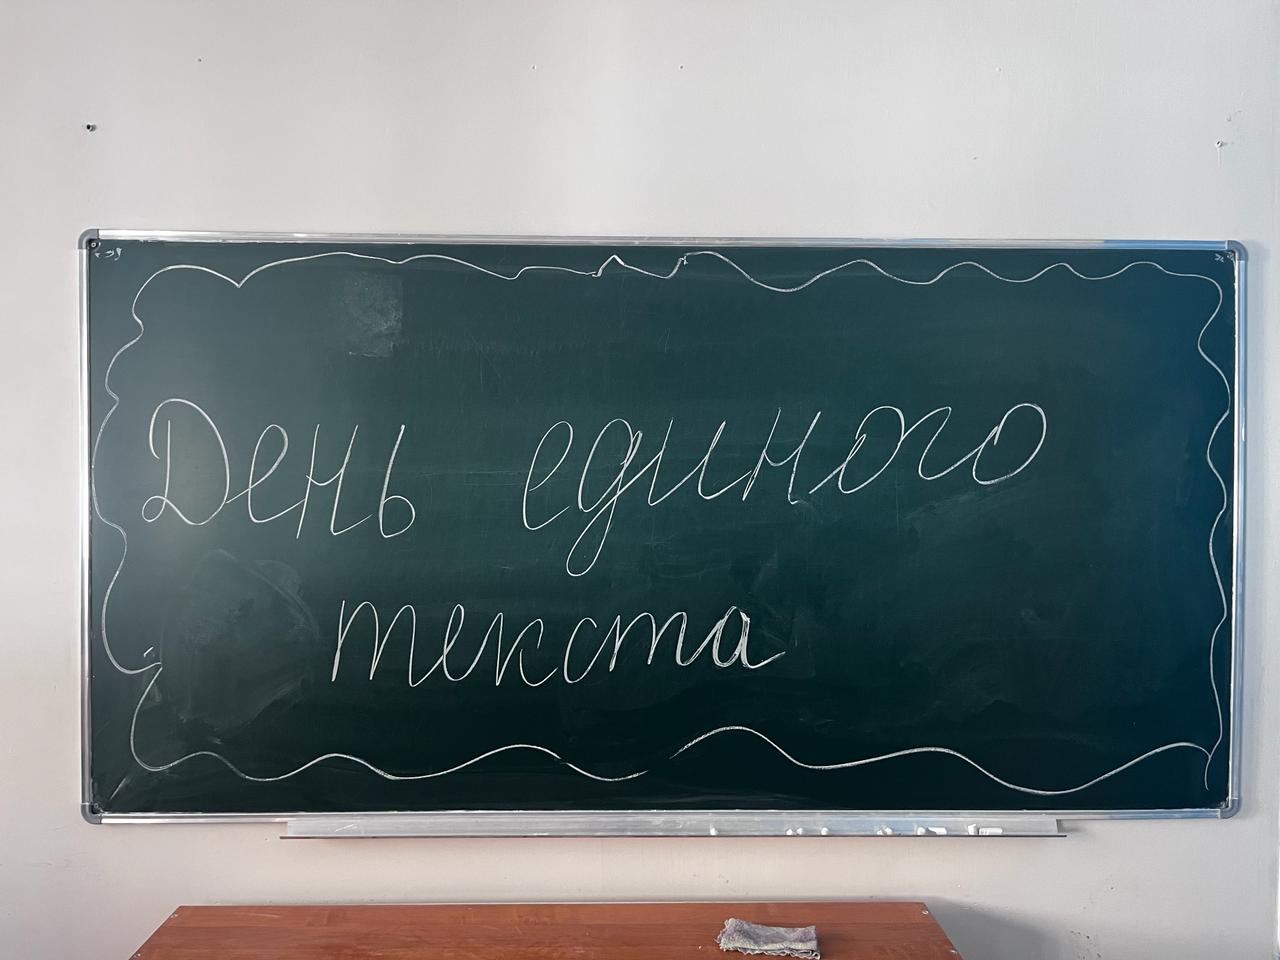 День единого
текста